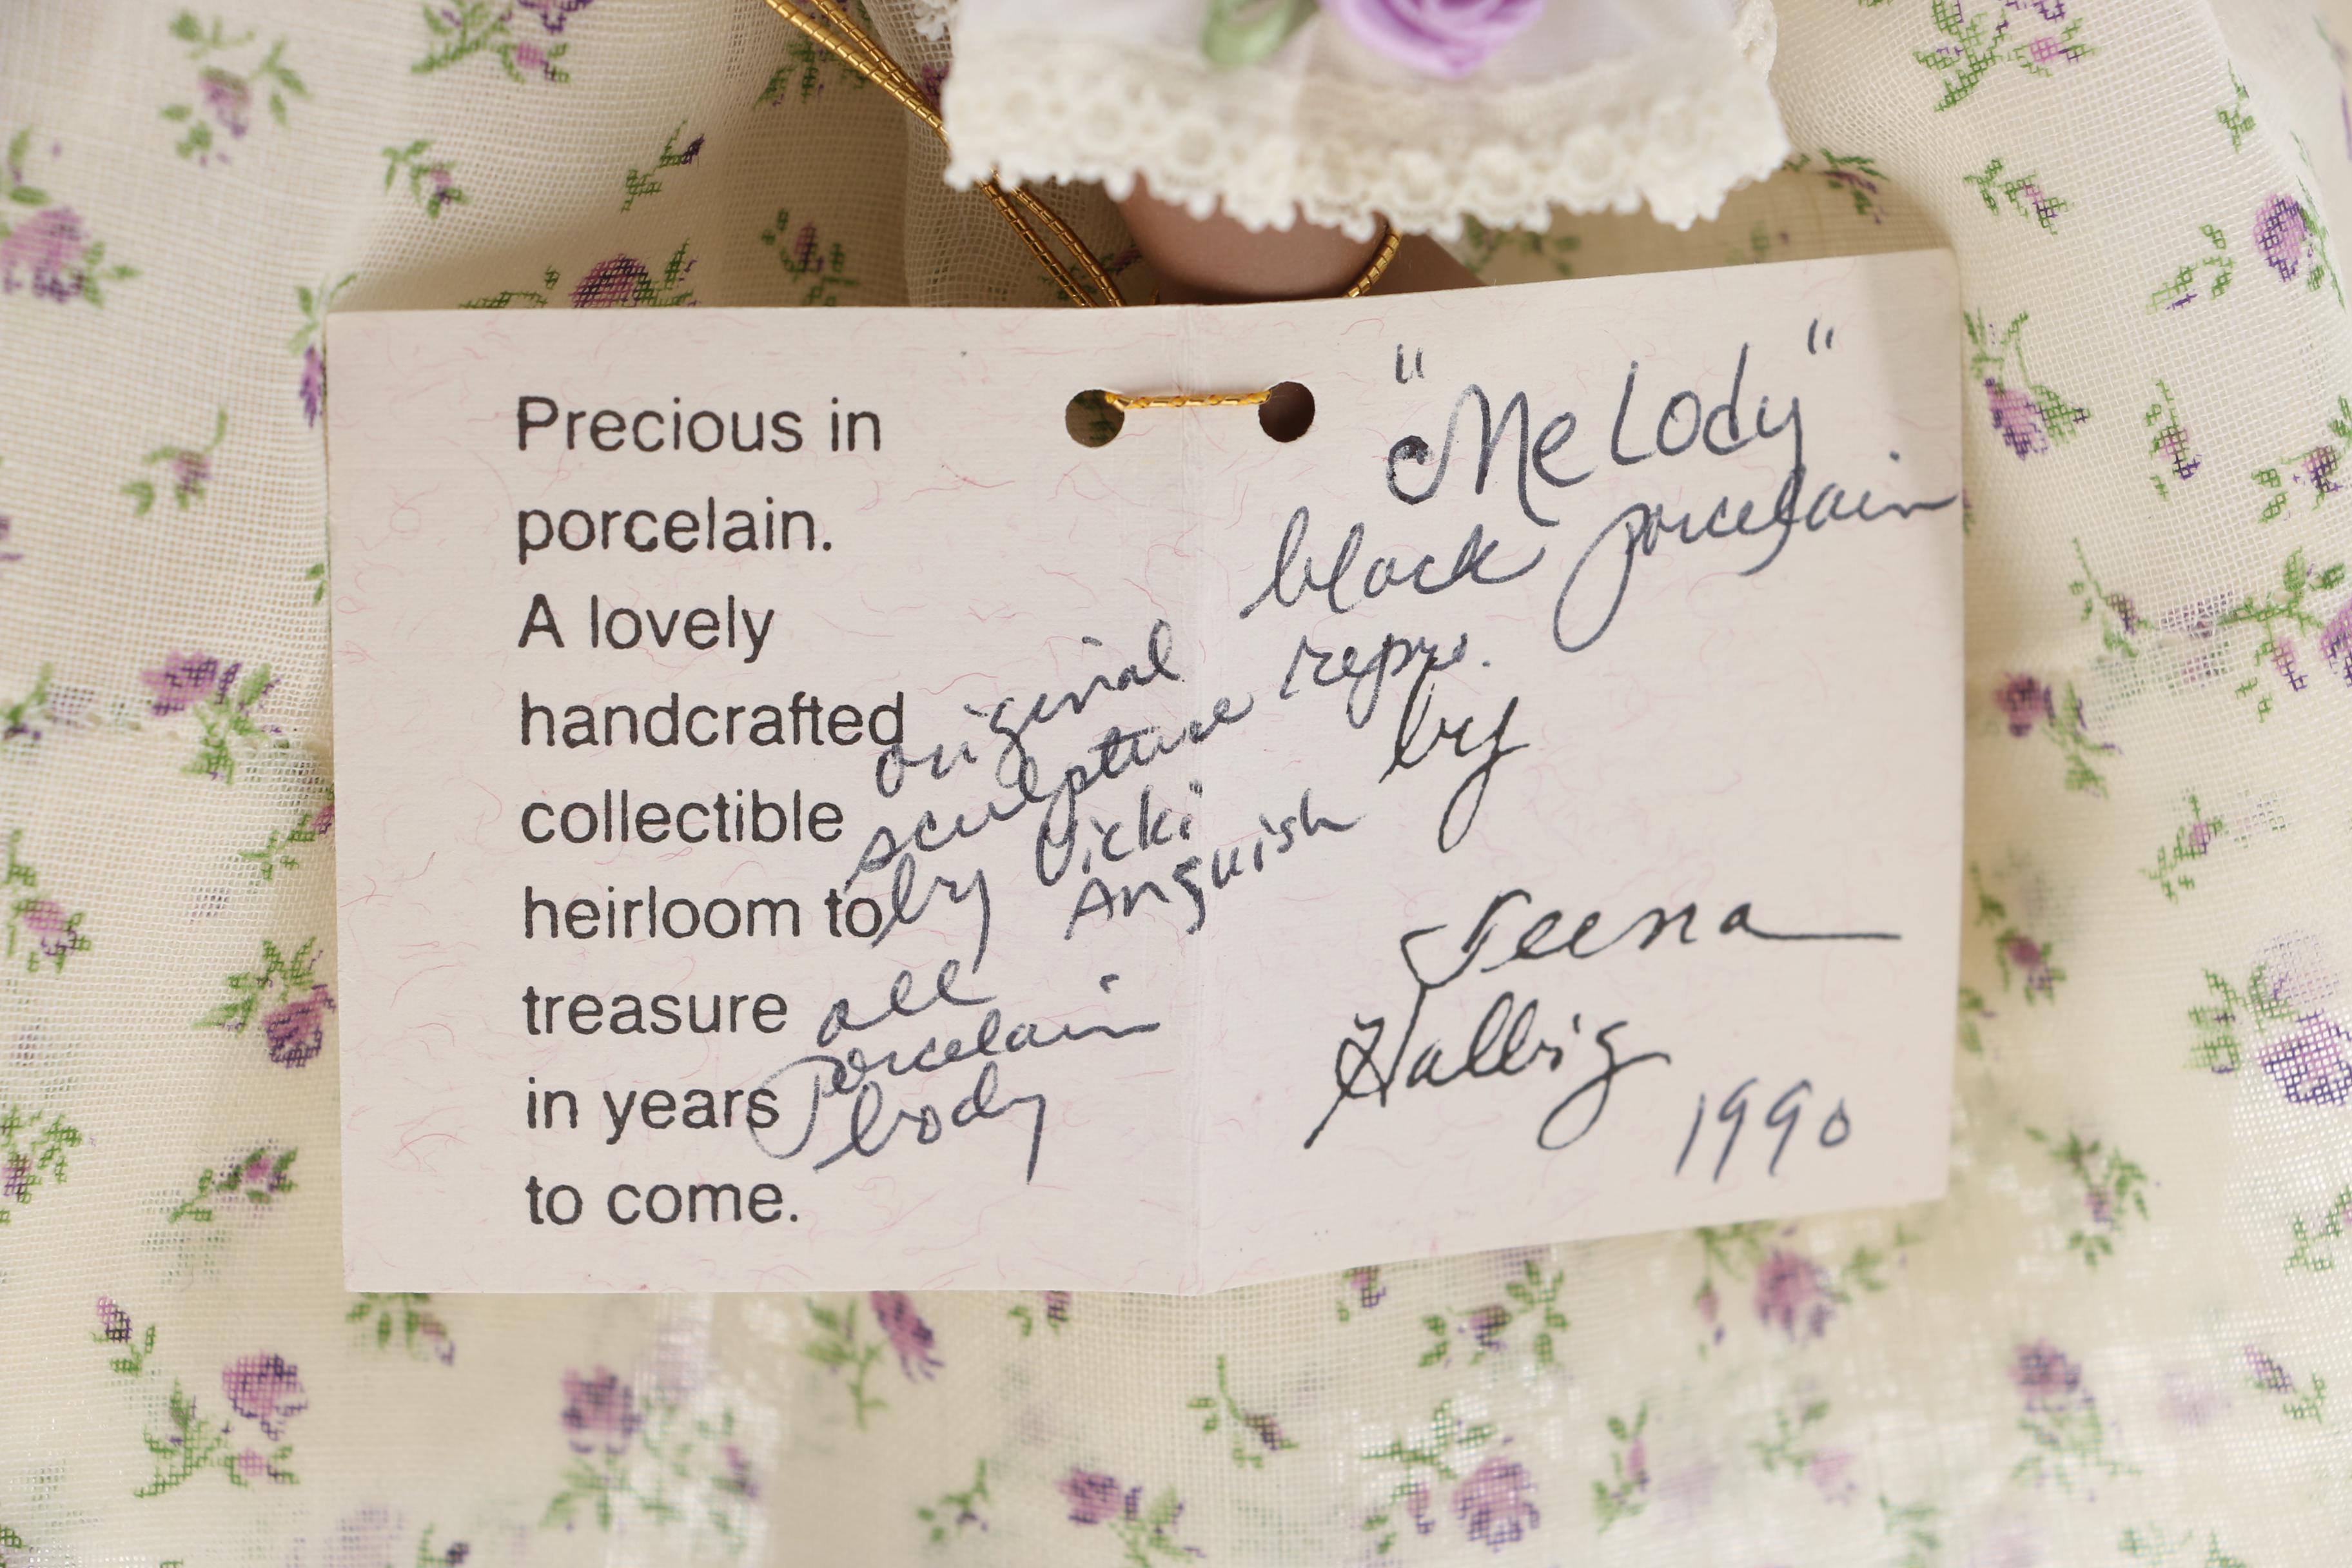 Precious in
porcelain.
A lovely
handcrafted
collectible
heirloom to
treasure
in years
to come.
original
sculpture
by Vicki
Anguish
all
porcelain
body
"Melody"
black porcelain
repro.
by
Teena
Halbig
1990